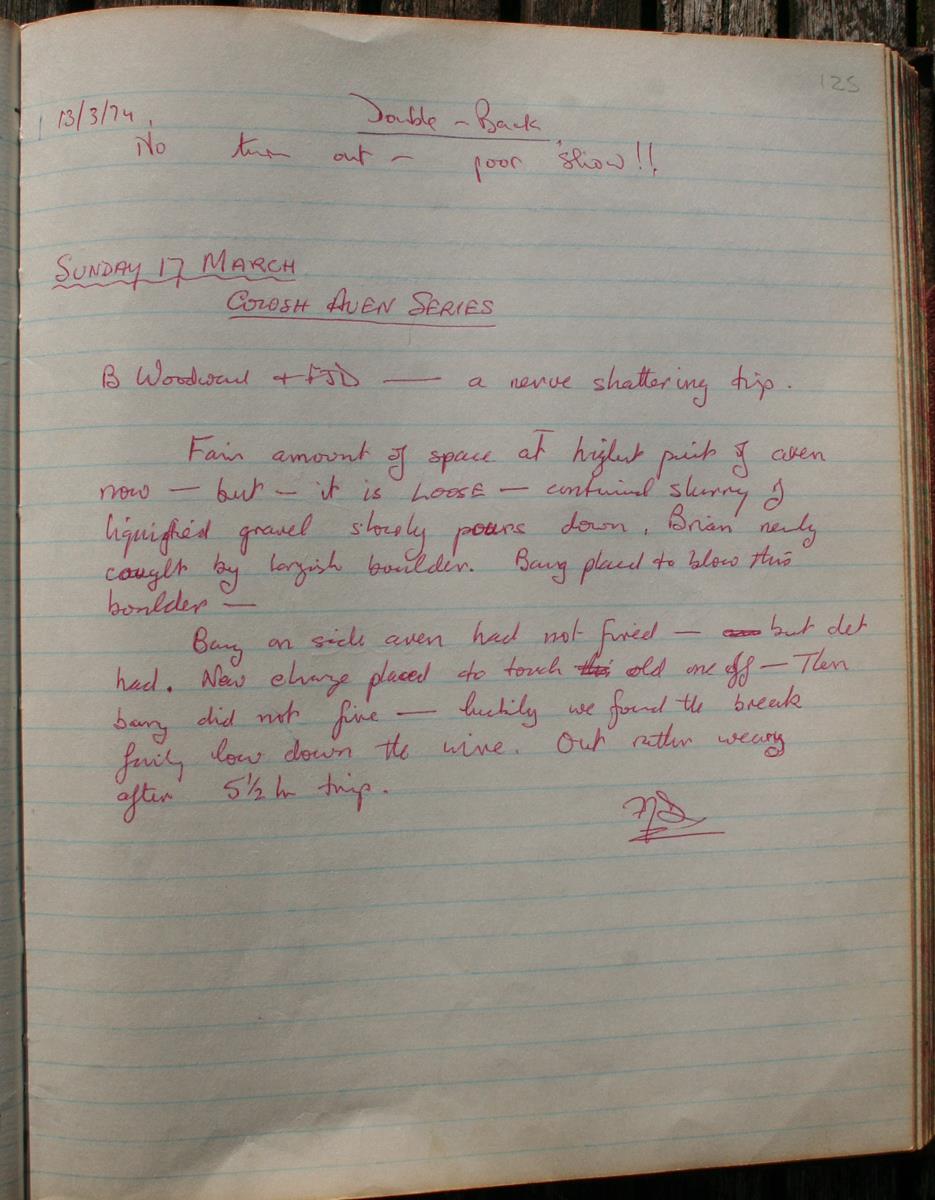 125
13/3/74. Double - Back
No turn out - poor show!!
SUNDAY 17 MARCH
GOLOSH AVEN SERIES
B Woodward + FJD — a nerve shattering trip.
Fair amount of space at highest point of aven
now — but — it is LOOSE — continual slurry of
liquified gravel slowly pours down. Brian nearly
caught by largish boulder. Bang placed to blow this
boulder —
Bang on side aven had not fired — but det
had. New charge placed to touch old one off — Then
bang did not fire — luckily we found the break
fairly low down the wire. Out rather weary
after 5½ hr trip.